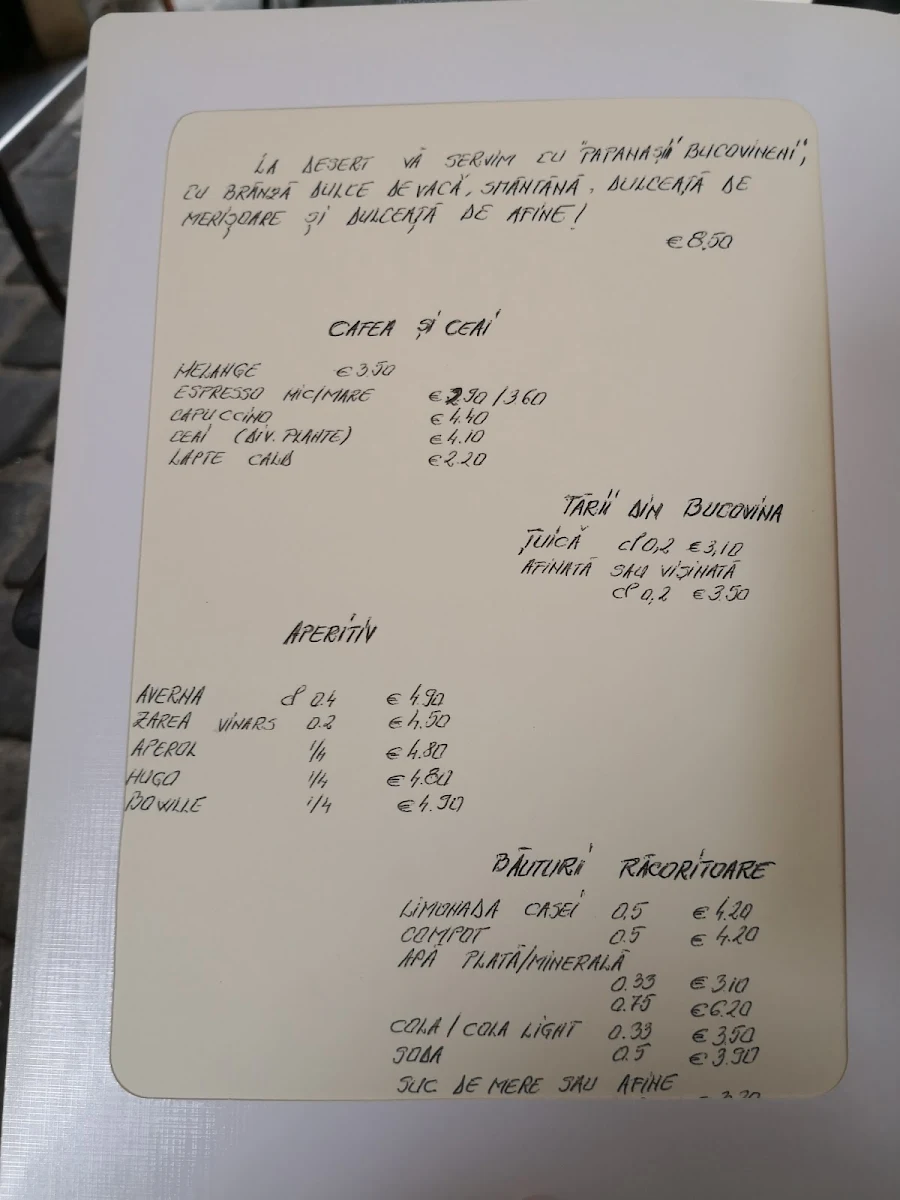 LA DESERT VĂ SERVIM CU "PAPANAȘII BUCOVINENI",
CU BRÂNZĂ DULCE DE VACĂ, SMÂNTÂNĂ, DULCEAȚĂ DE
MERIȘOARE ȘI DULCEAȚĂ DE AFINE!
€ 8,50
CAFEA ȘI CEAI
MELANGE € 3.50
ESPRESSO MIC/MARE € 2.90 / 3.60
CAPUCCINO € 4.40
CEAI (DIV. PLANTE) € 4.10
LAPTE CALD € 2.20
TĂRII DIN BUCOVINA
ȚUICĂ cl 0,2 € 3,10
AFINATĂ SAU VIȘINATĂ
cl 0,2 € 3.50
APERITIV
AVERNA cl 0.4 € 4.90
ZAREA VINARS 0.2 € 4.50
APEROL 1/4 € 4.80
HUGO 1/4 € 4.80
BOWLLE 1/4 € 4.90
BĂUTURII RĂCORITOARE
LIMONADA CASEI 0.5 € 4.20
COMPOT 0.5 € 4.20
APĂ PLATĂ/MINERALĂ
0.33 € 3.10
0.75 € 6.20
COLA / COLA LIGHT 0.33 € 3,50
SODA 0.5 € 3.90
SUC DE MERE SAU AFINE